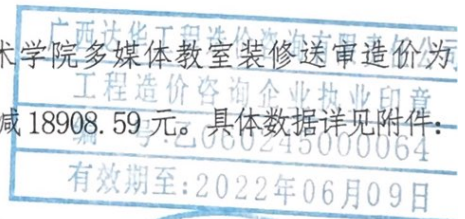 广西达华工程造价咨询有限责任公司
术学院多媒体教室装修送审造价为
工程造价咨询企业执业印章
减18908.59元。具体数据详见附件:
编号:乙060245000064
有效期至:2022年06月09日